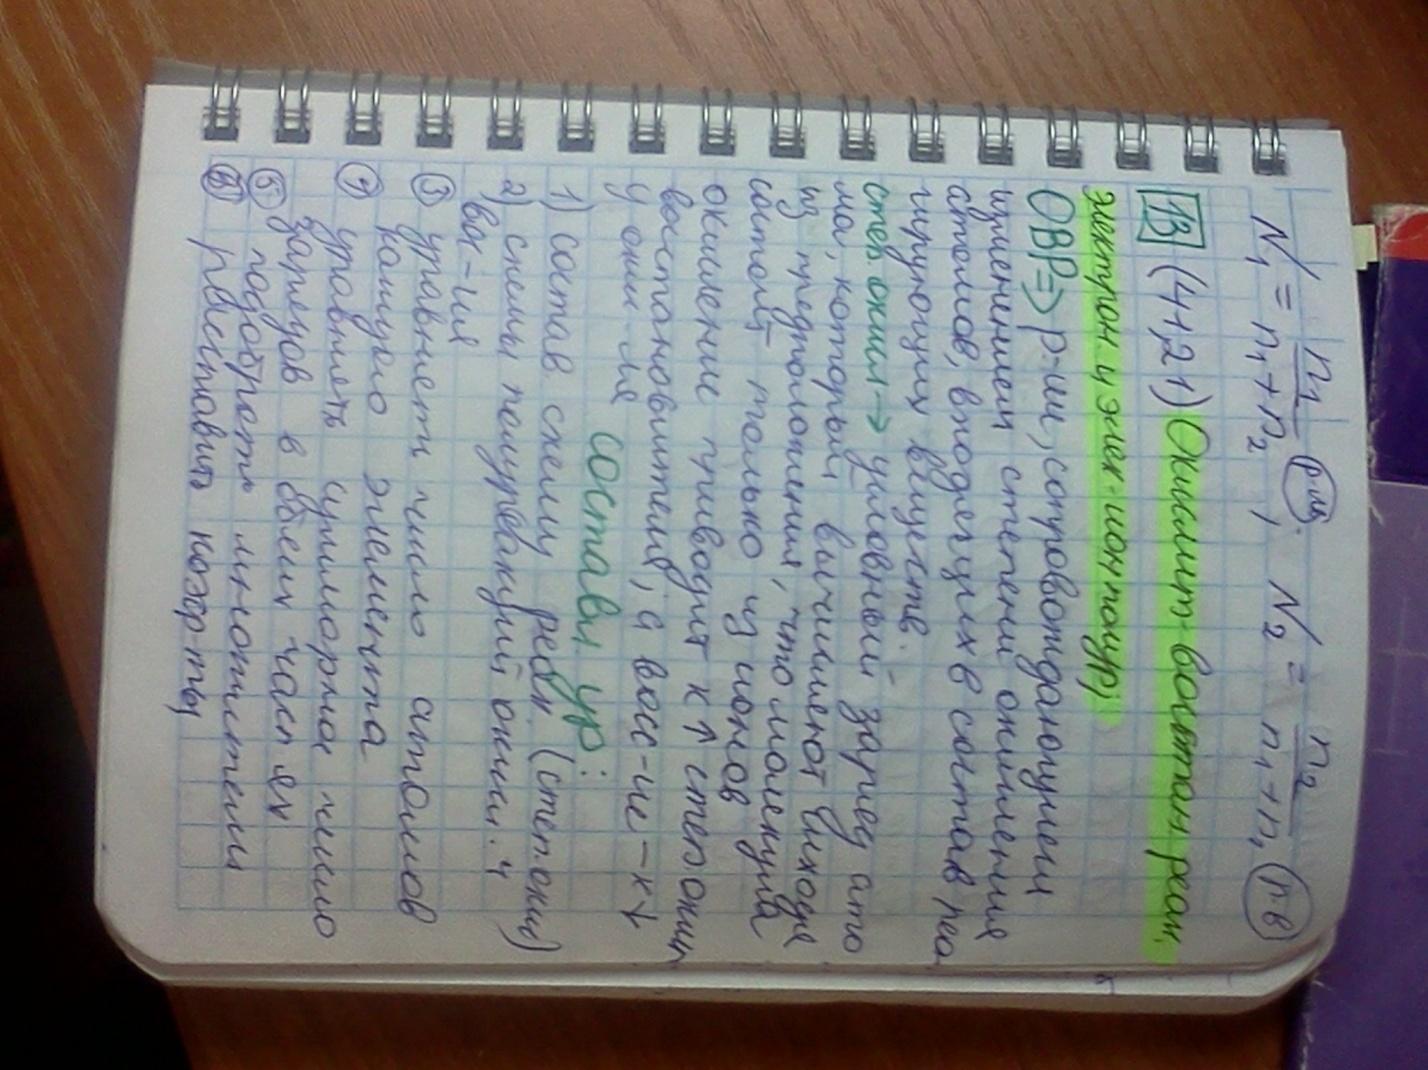 N₁ = n₁ / n₁ + n₂, N₂ = n₂ / n₁ + n₂
13 (4+,21) Окислит-восстан реак,
электрон и элек-ион полур)
ОВР => р-ии, сопровождающиеся
изменением степени окисления
атомов, входящих в состав реа
гирующих веществ.
степ окисл → условный заряд ато
ма, который вычисляют исходя
из предположения, что молекула
состоит только из ионов
окисление приводит к ↑ степ окисл
восстановителя, а восс-ие – к ↓
у окис-ля
составл ур:
1) состав схему реакц. (степ окис)
2) схемы полуреакций окисл. и
вос-ия
3 уравнять число атомов
каждого элемента
4 уравнять суммарное число
зарядов в обеих частях
5 подобрать множители
6 расставить коэф-ты